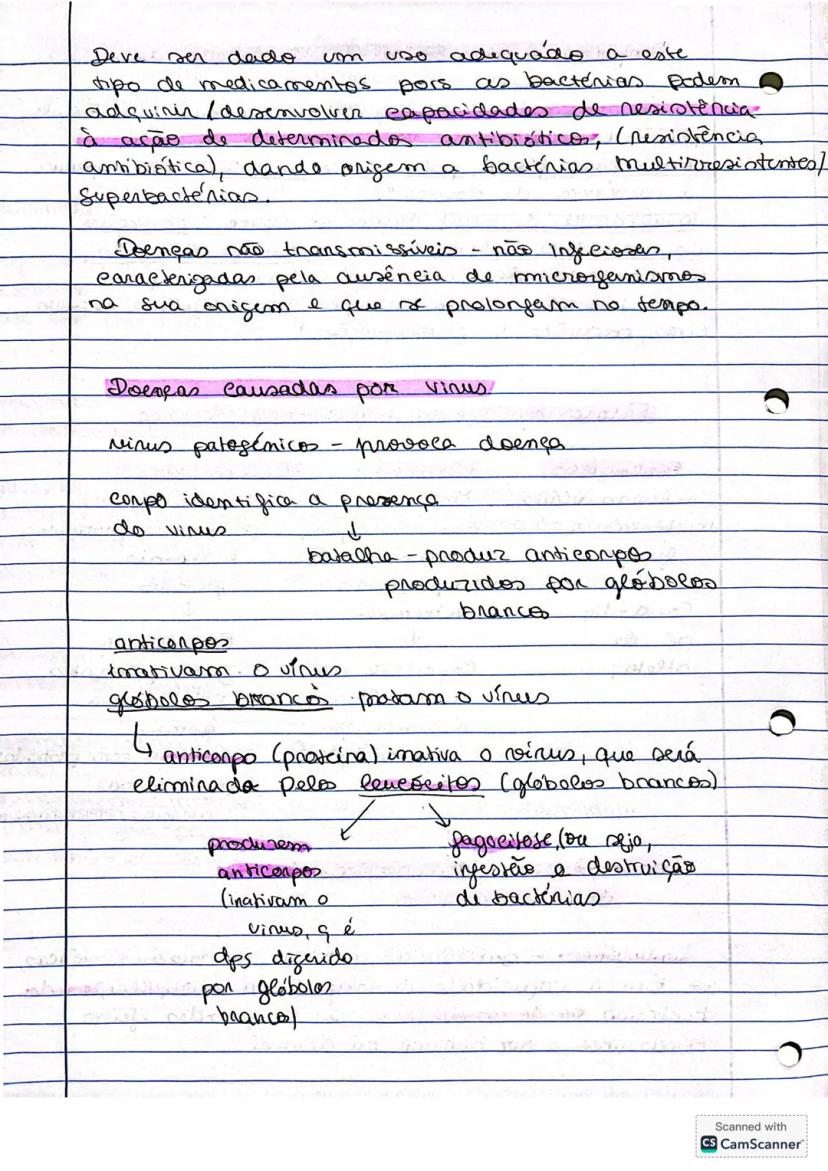 Deve ser dado um uso adequádo a este
tipo de medicamentos pois as bactérias podem
adquirir / desenvolver capacidades de resistência
à ação de determinados antibióticos, (resistência
antibiótica), dando origem a bactérias multirresistentes/
superbactérias.
Doenças não transmissíveis - não infeciosas,
caracterizadas pela ausência de microrganismos
na sua origem e que se prolongam no tempo.
Doenças causadas por vírus
vírus patogénicos - provoca doença
corpo identifica a presença
do vírus ↓
batalha - produz anticorpos
produzidos por glóbolos
branco
anticorpos
inativam o vírus
glóbolos brancos matam o vírus
↳ anticorpo (proteína) inativa o vírus, que será
eliminado pelos leucócitos (glóbolos brancos)
produzem
anticorpos
(inativam o
vírus, q é
dps digerido
por glóbolos
brancos)
fagocitose, (ou seja,
ingestão e destruição
de bactérias
Scanned with
CS CamScanner